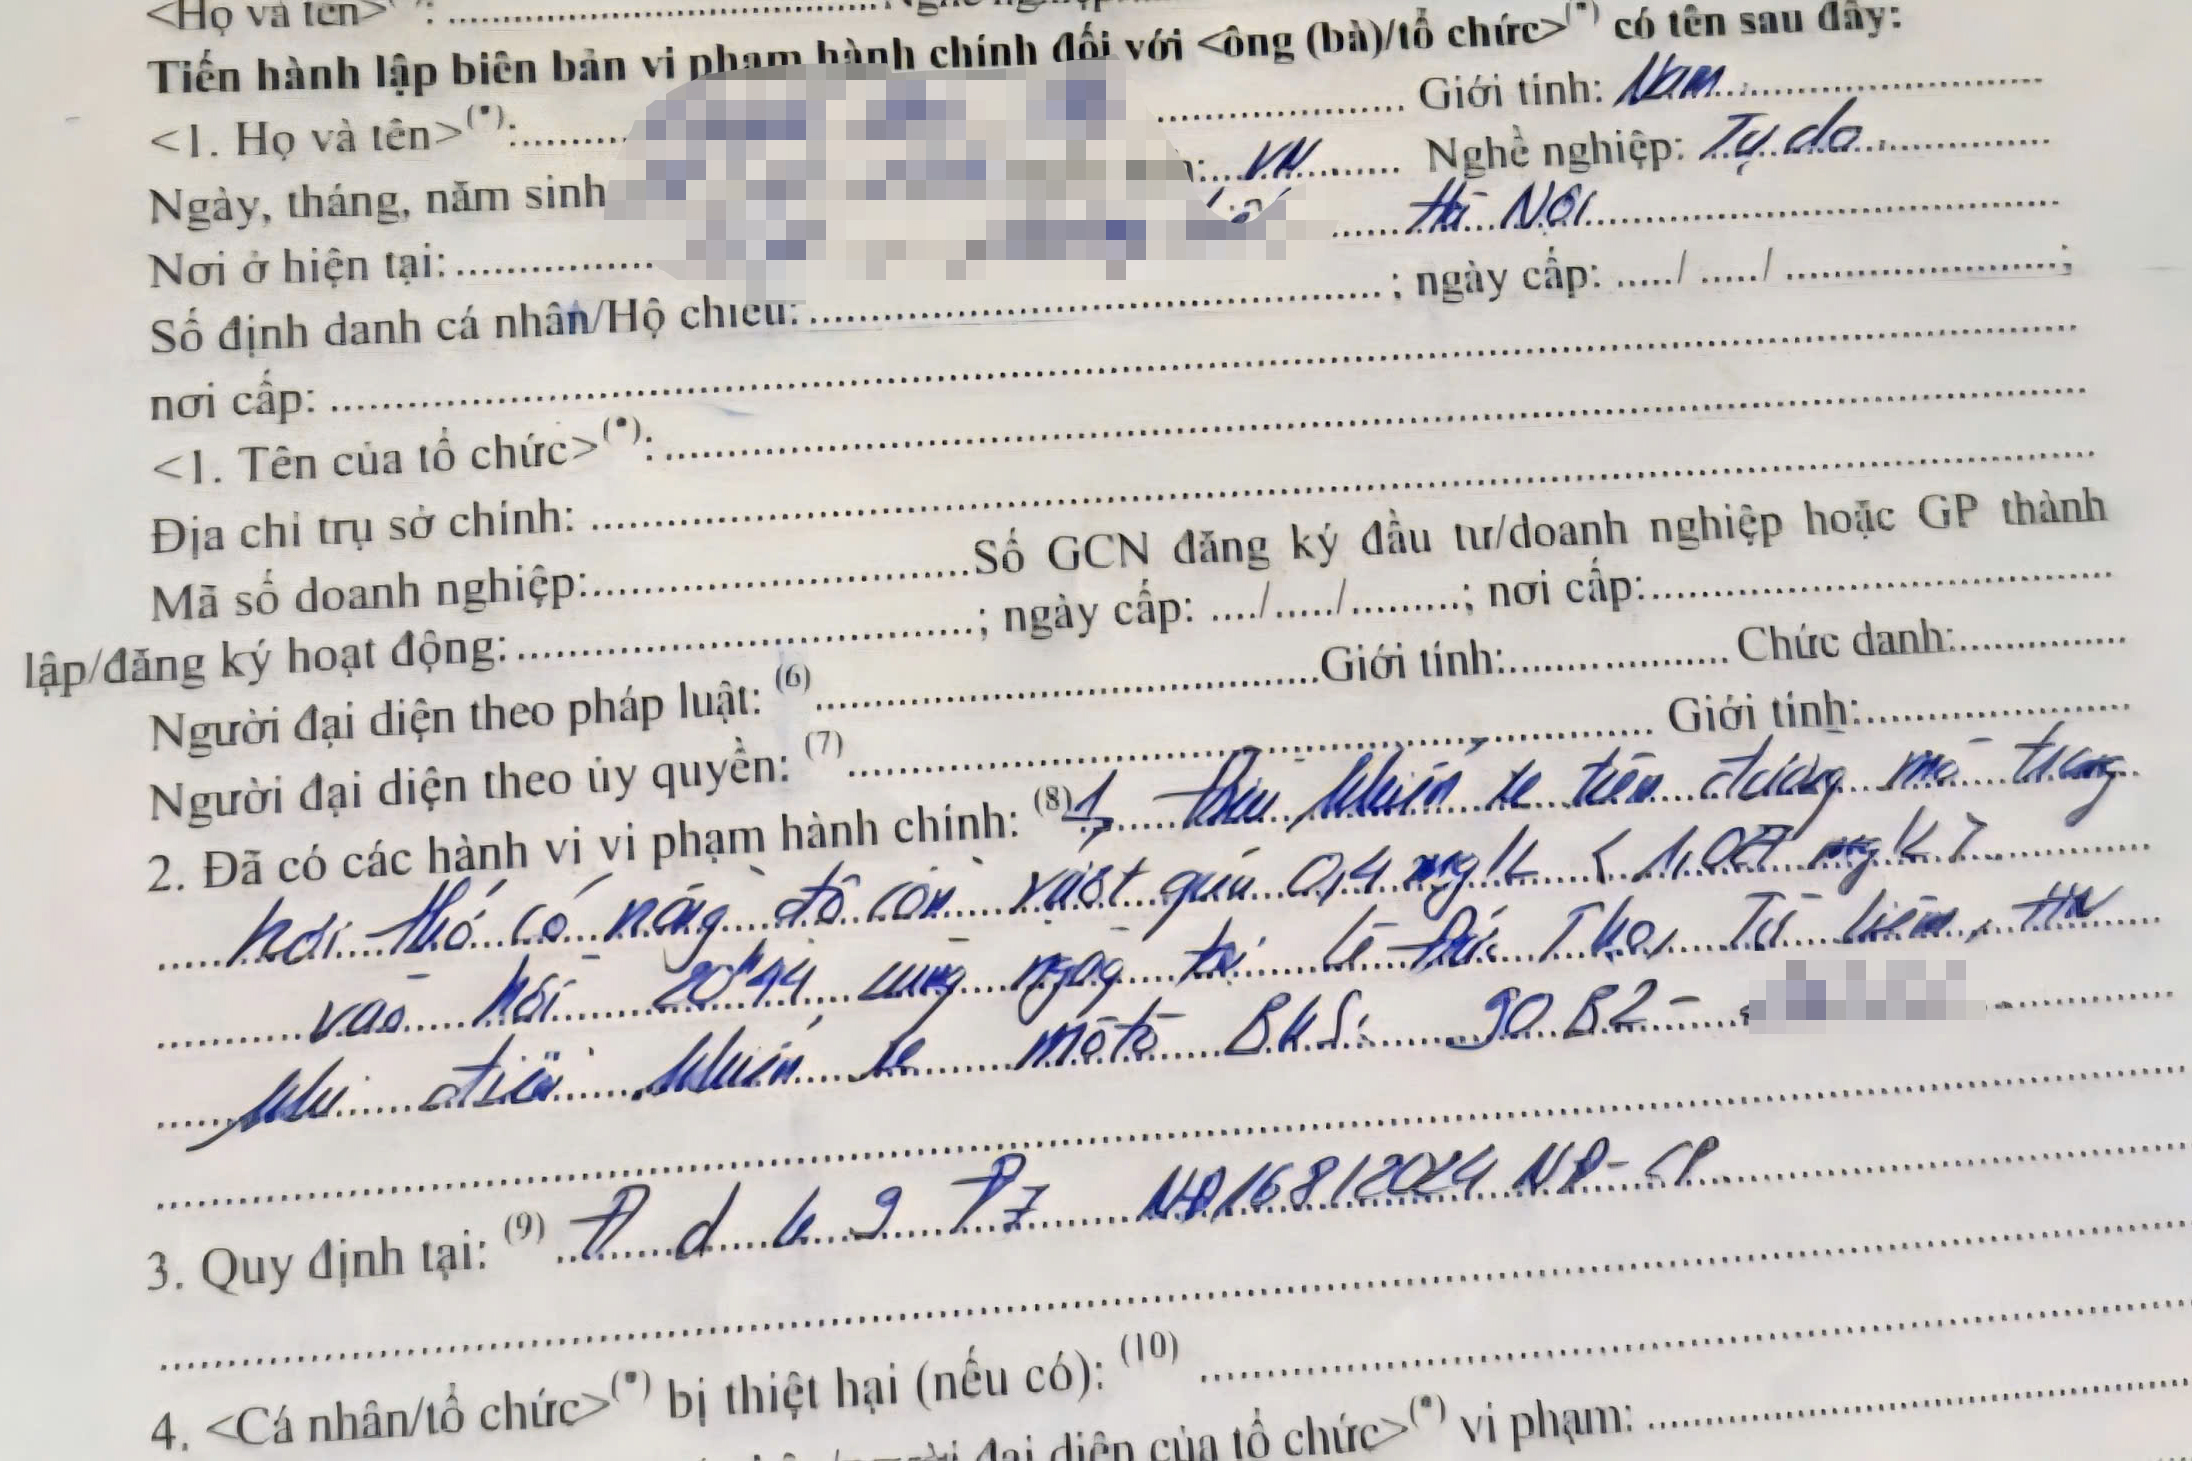 <Họ và tên>(*): ........ Nghề nghiệp:
Tiến hành lập biên bản vi phạm hành chính đối với <ông (bà)/tổ chức>(*) có tên sau đây:
<1. Họ và tên>(*): ........ Giới tính: Nam
Ngày, tháng, năm sinh ........ VN ........ Nghề nghiệp: Tự do
Nơi ở hiện tại: ........ Hà Nội
Số định danh cá nhân/Hộ chiếu: ........ ; ngày cấp: ...../ ...../ ........;
nơi cấp: ........
<1. Tên của tổ chức>(*): ........
Địa chỉ trụ sở chính: ........
Mã số doanh nghiệp:........Số GCN đăng ký đầu tư/doanh nghiệp hoặc GP thành
lập/đăng ký hoạt động:........; ngày cấp: ..../...../.........; nơi cấp:........
Người đại diện theo pháp luật: (6) ........Giới tính:........ Chức danh:........
Người đại diện theo ủy quyền: (7) ........ Giới tính:........
2. Đã có các hành vi vi phạm hành chính: (8) 1, Điều khiển xe trên đường mà trong
hơi thở có nồng độ cồn vượt quá 0,4 mg/L ( 1,07 mg/L )
vào hồi 20h44 cùng ngày tại Lê Đức Thọ, Từ Liêm, HN
khi điều khiển xe môtô BKS: 90B2-
3. Quy định tại: (9) Đ d k 9 Đ7 NĐ168/2024 NĐ-CP
4. <Cá nhân/tổ chức>(*) bị thiệt hại (nếu có): (10) ........
đại diện của tổ chức>(*) vi phạm: ........